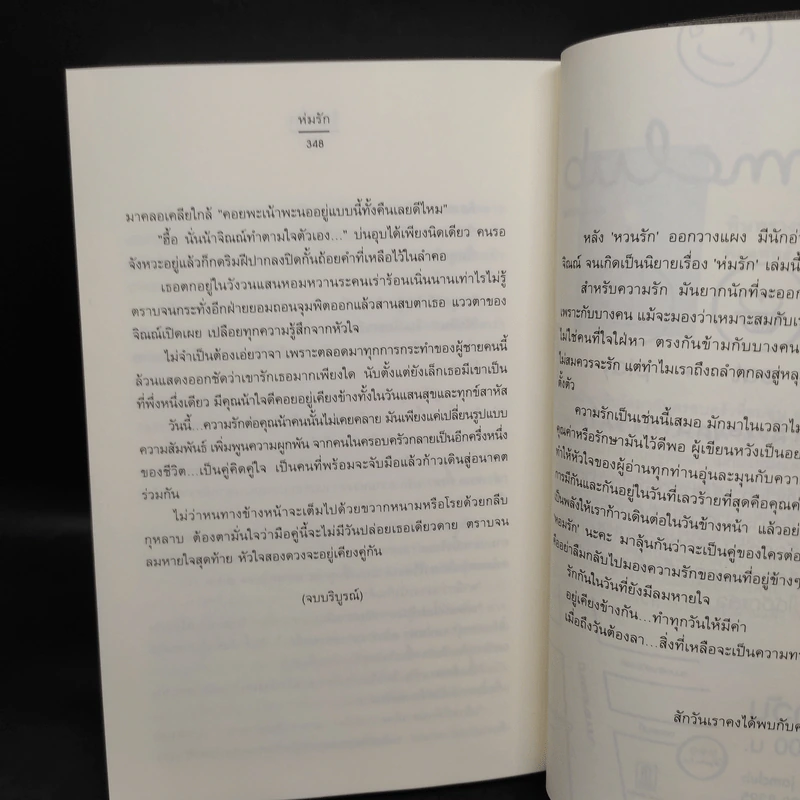 ห่มรัก
348
มาคลอเคลียใกล้ "คอยพะเน้าพะนออยู่แบบนี้ทั้งคืนเลยดีไหม"
"ฮื้อ นั่นน้าจิณณ์ทำตามใจตัวเอง..." บ่นอุบได้เพียงนิดเดียว คนรอ
จังหวะอยู่แล้วก็ตรึมฝีปากลงปิดกั้นถ้อยคำที่เหลือไว้ในลำคอ
เธอตกอยู่ในวังวนแสนหอมหวานระคนเร่าร้อนเนิ่นนานเท่าไรไม่รู้
ตราบจนกระทั่งอีกฝ่ายยอมถอนจุมพิตออกแล้วสานสบตาเธอ แววตาของ
จิณณ์เปิดเผย เปลือยทุกความรู้สึกจากหัวใจ
ไม่จำเป็นต้องเอ่ยวาจา เพราะตลอดมาทุกการกระทำของผู้ชายคนนี้
ล้วนแสดงออกชัดว่าเขารักเธอมากเพียงใด นับตั้งแต่ยังเล็กเธอมีเขาเป็น
ที่พึ่งหนึ่งเดียว มีคุณน้าใจดีคอยอยู่เคียงข้างทั้งในวันแสนสุขและทุกข์สาหัส
วันนี้...ความรักต่อคุณน้าคนนั้นไม่เคยคลาย มันเพียงแค่เปลี่ยนรูปแบบ
ความสัมพันธ์ เพิ่มพูนความผูกพัน จากคนในครอบครัวกลายเป็นอีกครึ่งหนึ่ง
ของชีวิต...เป็นคู่คิดคู่ใจ เป็นคนที่พร้อมจะจับมือแล้วก้าวเดินสู่อนาคต
ร่วมกัน
ไม่ว่าหนทางข้างหน้าจะเต็มไปด้วยขวากหนามหรือโรยด้วยกลีบ
กุหลาบ ต้องตามั่นใจว่ามือคู่นี้จะไม่มีวันปล่อยเธอเดียวดาย ตราบจน
ลมหายใจสุดท้าย หัวใจสองดวงจะอยู่เคียงคู่กัน
(จบบริบูรณ์)
หลัง 'หวนรัก' ออกวางแผง มีนักอ่า
จิณณ์ จนเกิดเป็นนิยายเรื่อง 'ห่มรัก' เล่มนี้
สำหรับความรัก มันยากนักที่จะออก
เพราะกับบางคน แม้จะมองว่าเหมาะสมกับเร
ไม่ใช่คนที่ใจใฝ่หา ตรงกันข้ามกับบางคน
ไม่สมควรจะรัก แต่ทำไมเราถึงถลำตกลงสู่หลุ
ตั้งตัว
ความรักเป็นเช่นนี้เสมอ มักมาในเวลาไม
คุณค่าหรือรักษามันไว้ดีพอ ผู้เขียนหวังเป็นอย
ทำให้หัวใจของผู้อ่านทุกท่านอุ่นละมุนกับควา
การมีกันและกันอยู่ในวันที่เลวร้ายที่สุดคือคุณค
เป็นพลังให้เราก้าวเดินต่อในวันข้างหน้า แล้วอย่
'หอมรัก' นะคะ มาลุ้นกันว่าจะเป็นคู่ของใครต่อ
คืออย่าลืมกลับไปมองความรักของคนที่อยู่ข้างๆ
รักกันในวันที่ยังมีลมหายใจ
อยู่เคียงข้างกัน...ทำทุกวันให้มีค่า
เมื่อถึงวันต้องลา...สิ่งที่เหลือจะเป็นความทร
สักวันเราคงได้พบกับค